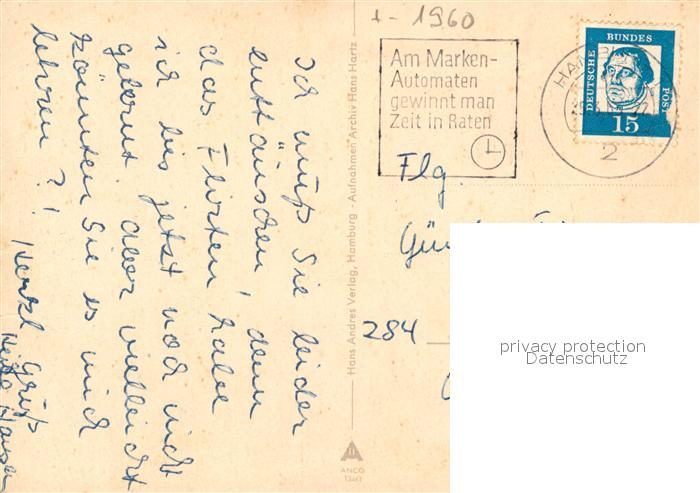 + - 1960
Am Marken-
Automaten
gewinnt man
Zeit in Raten
HAMB
2
DEUTSCHE
BUNDES
POST
15
Ich muß Sie leider
enttäuschen, denn
das Flirten habe
ich bis jetzt noch nicht
gelernt, aber vielleicht
könnten Sie es mich
lehren?!
Herzl. Gruß
Hans Andres Verlag, Hamburg - Aufnahmen Archiv Hans Hartz
ANCO
Flg.
284
privacy protection
Datenschutz